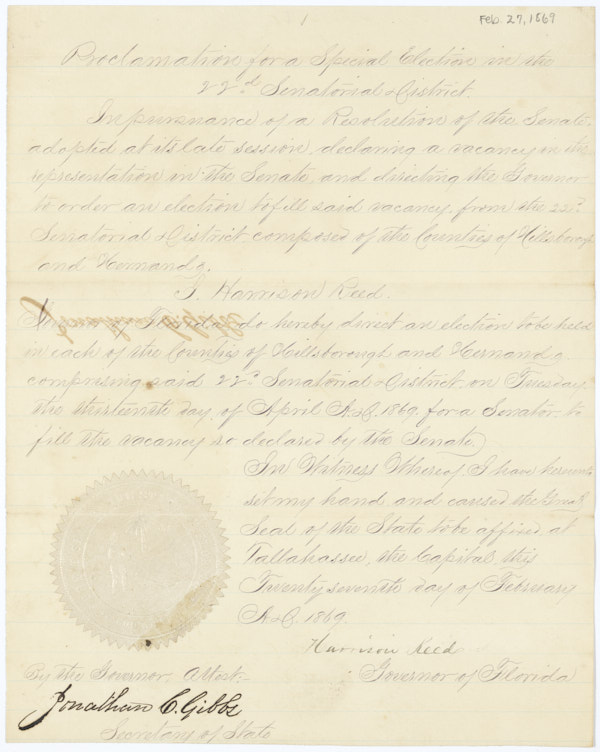 1
Feb. 27, 1869
Proclamation for a Special Election in the
22nd Senatorial District.
In pursuance of a Resolution of the Senate
adopted at its late session, declaring a vacancy in the
representation in the Senate, and directing the Governor
to order an election to fill said vacancy from the 22d
Senatorial District composed of the Counties of Hillsborough
and Hernando.
I, Harrison Reed.
do hereby direct an election to be held
in each of the Counties of Hillsborough and Hernando
comprising said 22d Senatorial District, on Tuesday
the thirteenth day of April A.D. 1869, for a Senator to
fill the vacancy so declared by the Senate.
In Witness Whereof, I have hereunto
set my hand and caused the Great
Seal of the State to be affixed at
Tallahassee, the Capital, this
Twenty seventh day of February
A.D. 1869.
Harrison Reed
Governor of Florida
By the Governor, Attest:
Jonathan C. Gibbs
Secretary of State